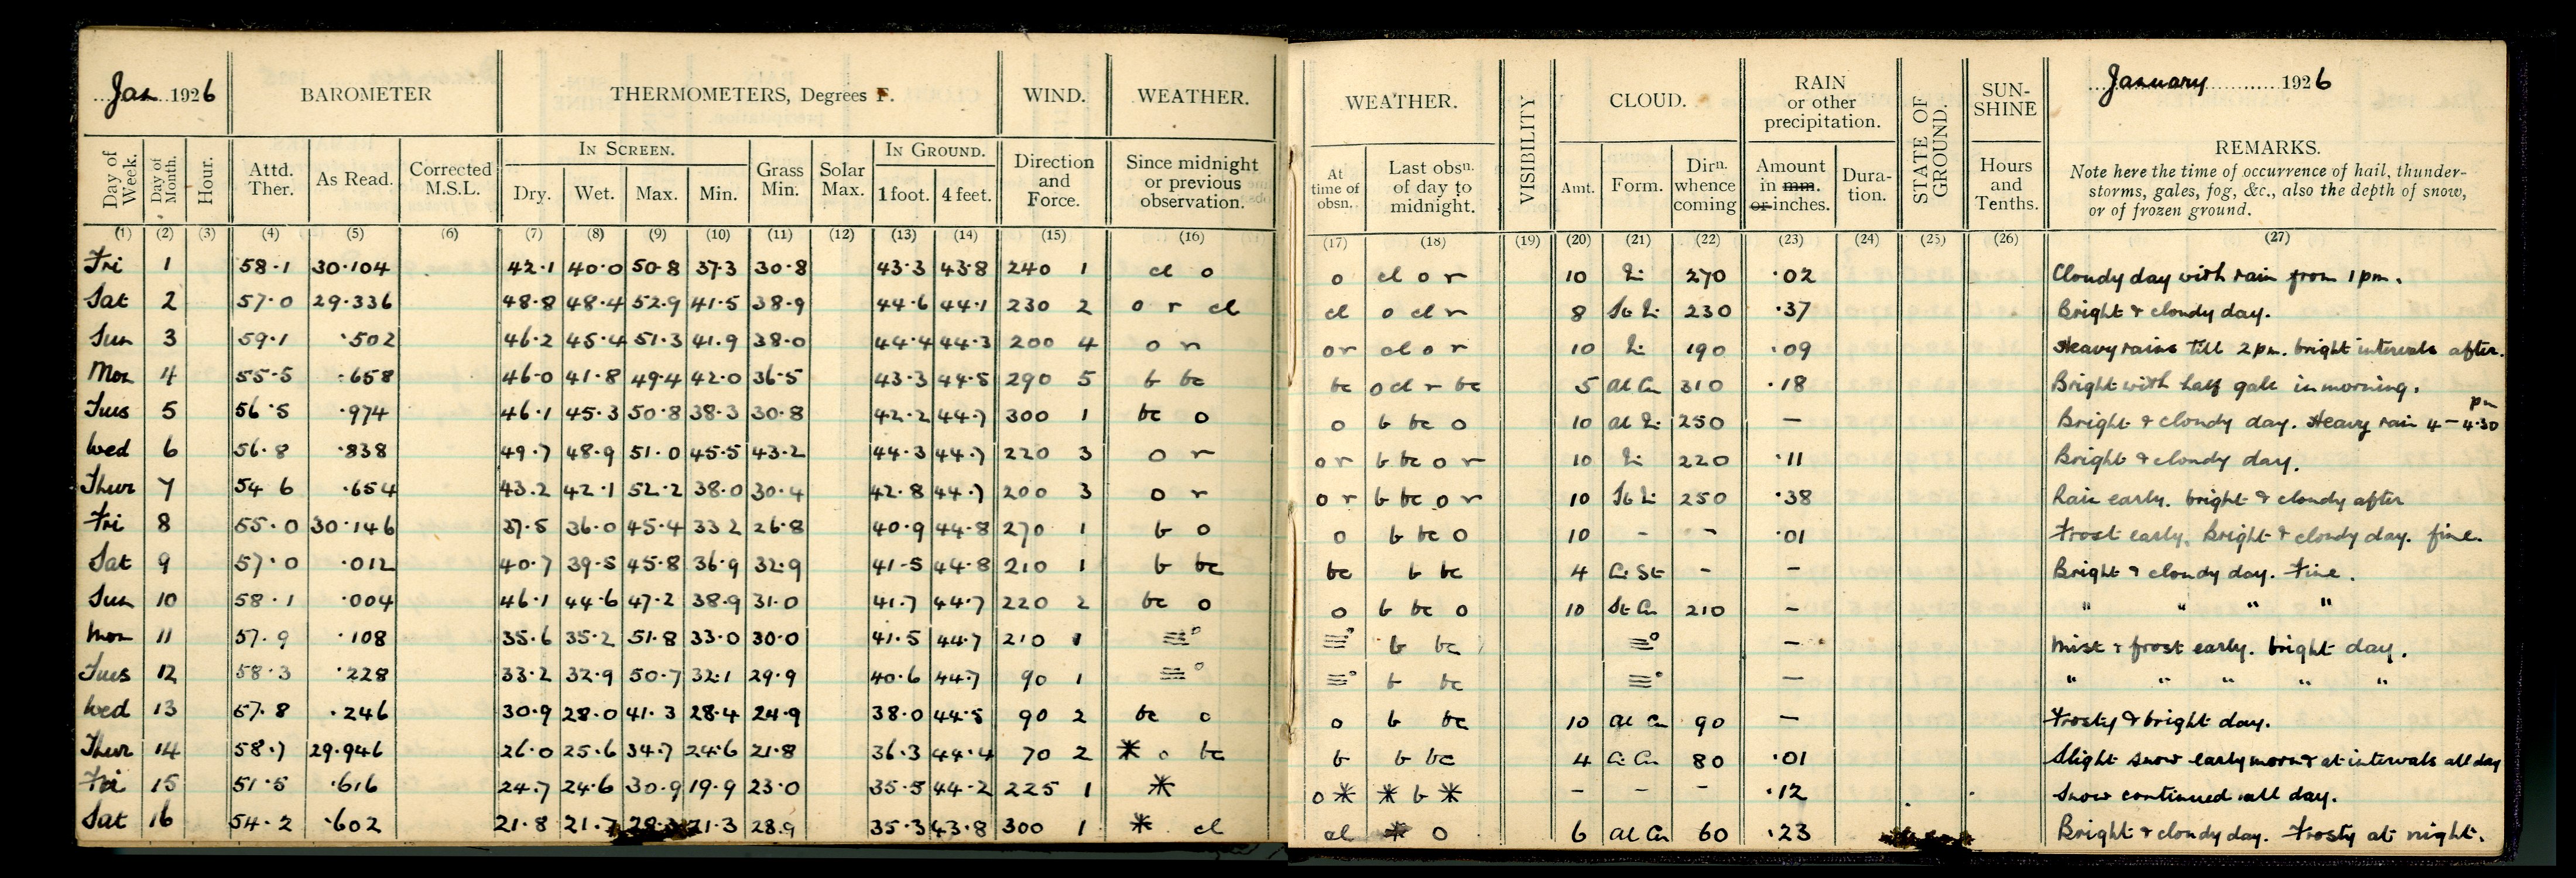 Jan 1926 BAROMETER THERMOMETERS, Degrees F. WIND. WEATHER.
Day of Week. Day of Month. Hour. Attd. Ther. As Read. Corrected M.S.L. IN SCREEN. Dry. Wet. Max. Min. Grass Min. Solar Max. IN GROUND. 1 foot. 4 feet. Direction and Force. Since midnight or previous observation.
(1) (2) (3) (4) (5) (6) (7) (8) (9) (10) (11) (12) (13) (14) (15) (16)
Fri 1 58.1 30.104 42.1 40.0 50.8 37.3 30.8 43.3 43.8 240 1 cl o
Sat 2 57.0 29.336 48.8 48.4 52.9 41.5 38.9 44.6 44.1 230 2 o r cl
Sun 3 59.1 .502 46.2 45.4 51.3 41.9 38.0 44.4 44.3 200 4 o r
Mon 4 55.5 .658 46.0 41.8 49.4 42.0 36.5 43.3 44.5 290 5 b bc
Tues 5 56.5 .974 46.1 45.3 50.8 38.3 30.8 42.2 44.7 300 1 bc o
Wed 6 56.8 .838 49.7 48.9 51.0 45.5 43.2 44.3 44.7 220 3 o r
Thur 7 54 6 .654 43.2 42.1 52.2 38.0 30.4 42.8 44.7 200 3 o r
Fri 8 55.0 30.146 37.5 36.0 45.4 33 2 26.8 40.9 44.8 270 1 b o
Sat 9 57.0 .012 40.7 39.5 45.8 36.9 32.9 41.5 44.8 210 1 b bc
Sun 10 58.1 .004 46.1 44.6 47.2 38.9 31.0 41.7 44.7 220 2 bc o
Mon 11 57.9 .108 35.6 35.2 51.8 33.0 30.0 41.5 44.7 210 1 ≡°
Tues 12 58.3 .228 33.2 32.9 50.7 32.1 29.9 40.6 44.7 90 1 ≡°
Wed 13 57.8 .246 30.9 28.0 41.3 28.4 24.9 38.0 44.5 90 2 bc o
Thur 14 58.7 29.946 26.0 25.6 34.7 24.6 21.8 36.3 44.4 70 2 * o bc
Fri 15 51.5 .616 24.7 24.6 30.9 19.9 23.0 35.5 44.2 225 1 *
Sat 16 54.2 .602 21.8 21.7 21.3 28.9 35.3 43.8 300 1 * cl
WEATHER. VISIBILITY CLOUD. RAIN or other precipitation. STATE OF GROUND. SUN-SHINE January 1926
At time of obsn. Last obsn. of day to midnight. Amt. Form. Dirn. whence coming Amount in mm. or inches. Duration. Hours and Tenths. REMARKS.
Note here the time of occurrence of hail, thunder-
storms, gales, fog, &c., also the depth of snow,
or of frozen ground.
(17) (18) (19) (20) (21) (22) (23) (24) (25) (26) (27)
o cl o r 10 270 .02 Cloudy day with rain from 1 pm.
cl o cl r 8 230 .37 Bright & cloudy day.
o r cl o r 10 190 .09 Heavy rains till 2 pm. bright intervals after.
bc o cl r bc 5 al Cu 310 .18 Bright with half gale in morning.
o b bc o 10 250 — Bright & cloudy day. Heavy rain 4 - 4.30 pm
o r b bc o r 10 220 .11 Bright & cloudy day.
o r b bc o r 10 250 .38 Rain early. bright & cloudy after
o b bc o 10 - - .01 Frost early. Bright & cloudy day. fine.
bc b bc 4 Ci St - — Bright & cloudy day. Fine.
o b bc o 10 St Cu 210 — " " " "
≡° b bc ≡° — Mist & frost early. bright day.
≡° b bc ≡° — " " " " "
o b bc 10 al Cu 90 — Frosty & bright day.
b b bc 4 Ci Cu 80 .01 Slight snow early morn & at intervals all day
o * * b * - - - .12 Snow continued all day.
cl * o 6 al Cu 60 .23 Bright & cloudy day. Frosty at night.